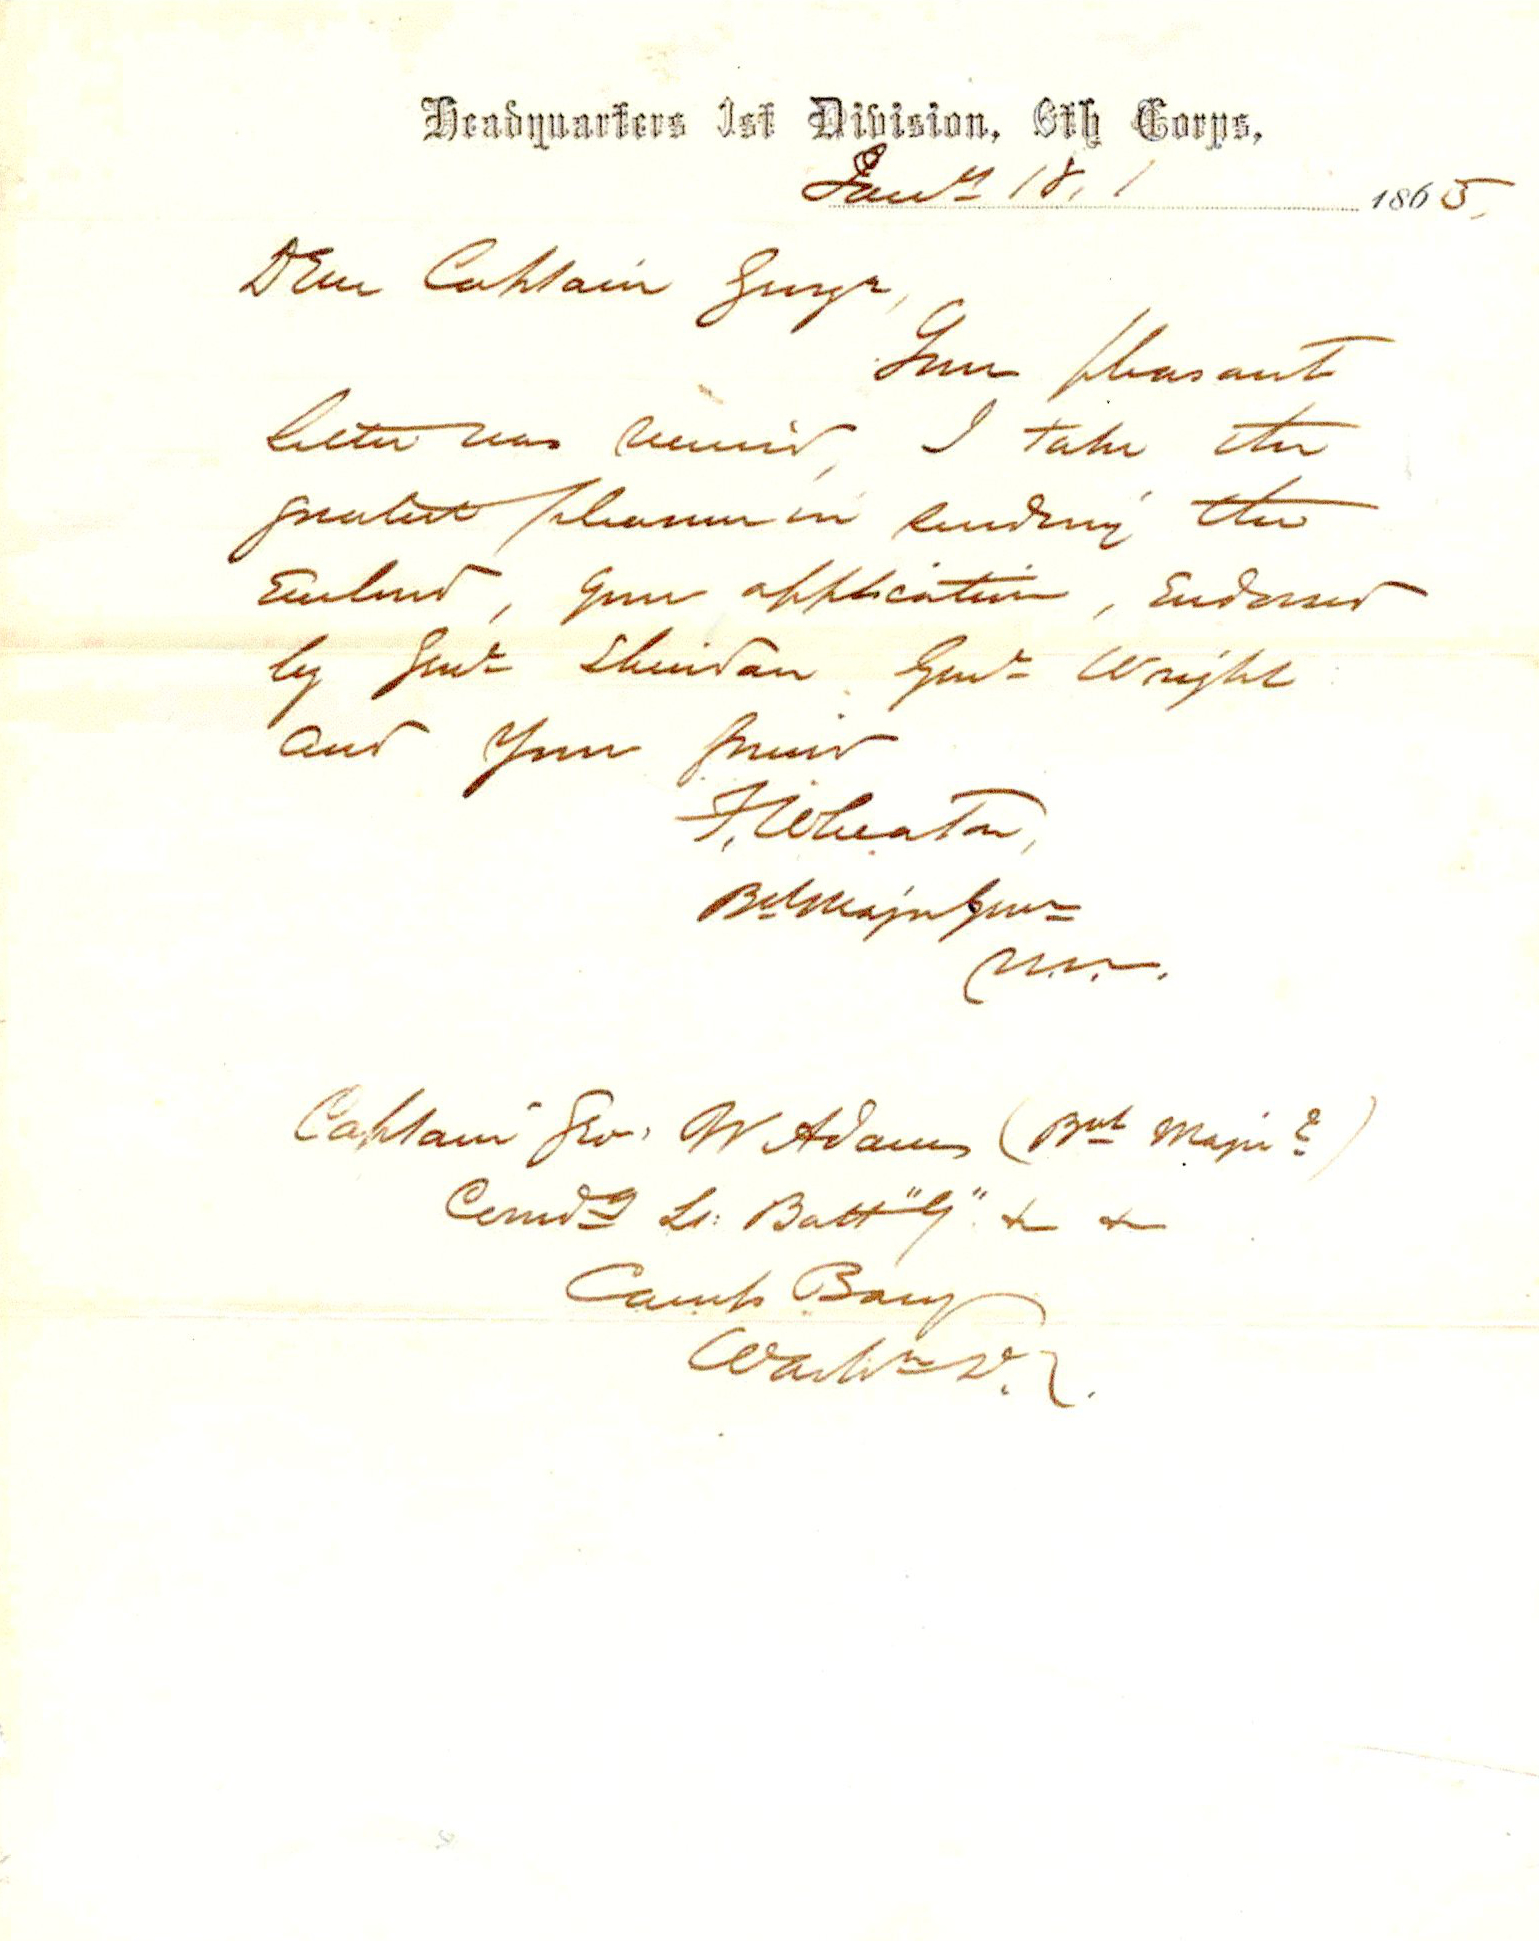 Headquarters 1st Division, 6th Corps,
Jany 18, 1865.
Dear Captain George,
Your pleasant
letter was received, I take the
greatest pleasure in sending the
Enclosed, your application, Endorsed
by Genl Sheridan Genl Wright
and your friend
F. Wheaton,
Bvt Major Genl
Captain Geo. W Adams (Bvt Major &c)
Comdg Lt. Batt "G" &c &c
Camp Barry
Washn D.C.